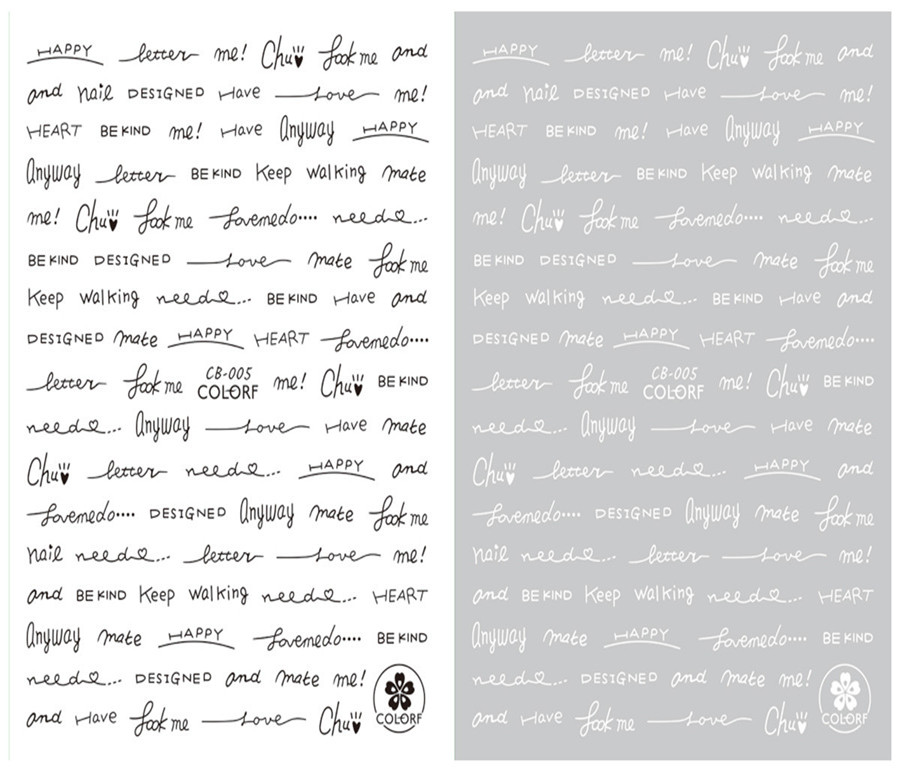 HAPPY letter me! Chu look me and
and nail DESIGNED Have Love me!
HEART BE KIND me! Have Anyway HAPPY
Anyway letter BE KIND Keep walking mate
me! Chu look me Lovemedo···· need...
BE KIND DESIGNED Love mate look me
Keep walking need... BE KIND Have and
DESIGNED mate HAPPY HEART Lovemedo····
letter look me CB-005 COLORF me! Chu BE KIND
need... Anyway Love Have mate
Chu letter need... HAPPY and
Lovemedo···· DESIGNED Anyway mate look me
nail need... letter Love me!
and BE KIND Keep walking need... HEART
Anyway mate HAPPY Lovemedo···· BE KIND
need... DESIGNED and mate me!
and Have look me Love Chu COLORF
HAPPY letter me! Chu look me and
and nail DESIGNED Have Love me!
HEART BE KIND me! Have Anyway HAPPY
Anyway letter BE KIND Keep walking mate
me! Chu look me Lovemedo···· need...
BE KIND DESIGNED Love mate look me
Keep walking need... BE KIND Have and
DESIGNED mate HAPPY HEART Lovemedo····
letter look me CB-005 COLORF me! Chu BE KIND
need... Anyway Love Have mate
Chu letter need... HAPPY and
Lovemedo···· DESIGNED Anyway mate look me
nail need... letter Love me!
and BE KIND Keep walking need... HEART
Anyway mate HAPPY Lovemedo···· BE KIND
need... DESIGNED and mate me!
and Have look me Love Chu COLORF